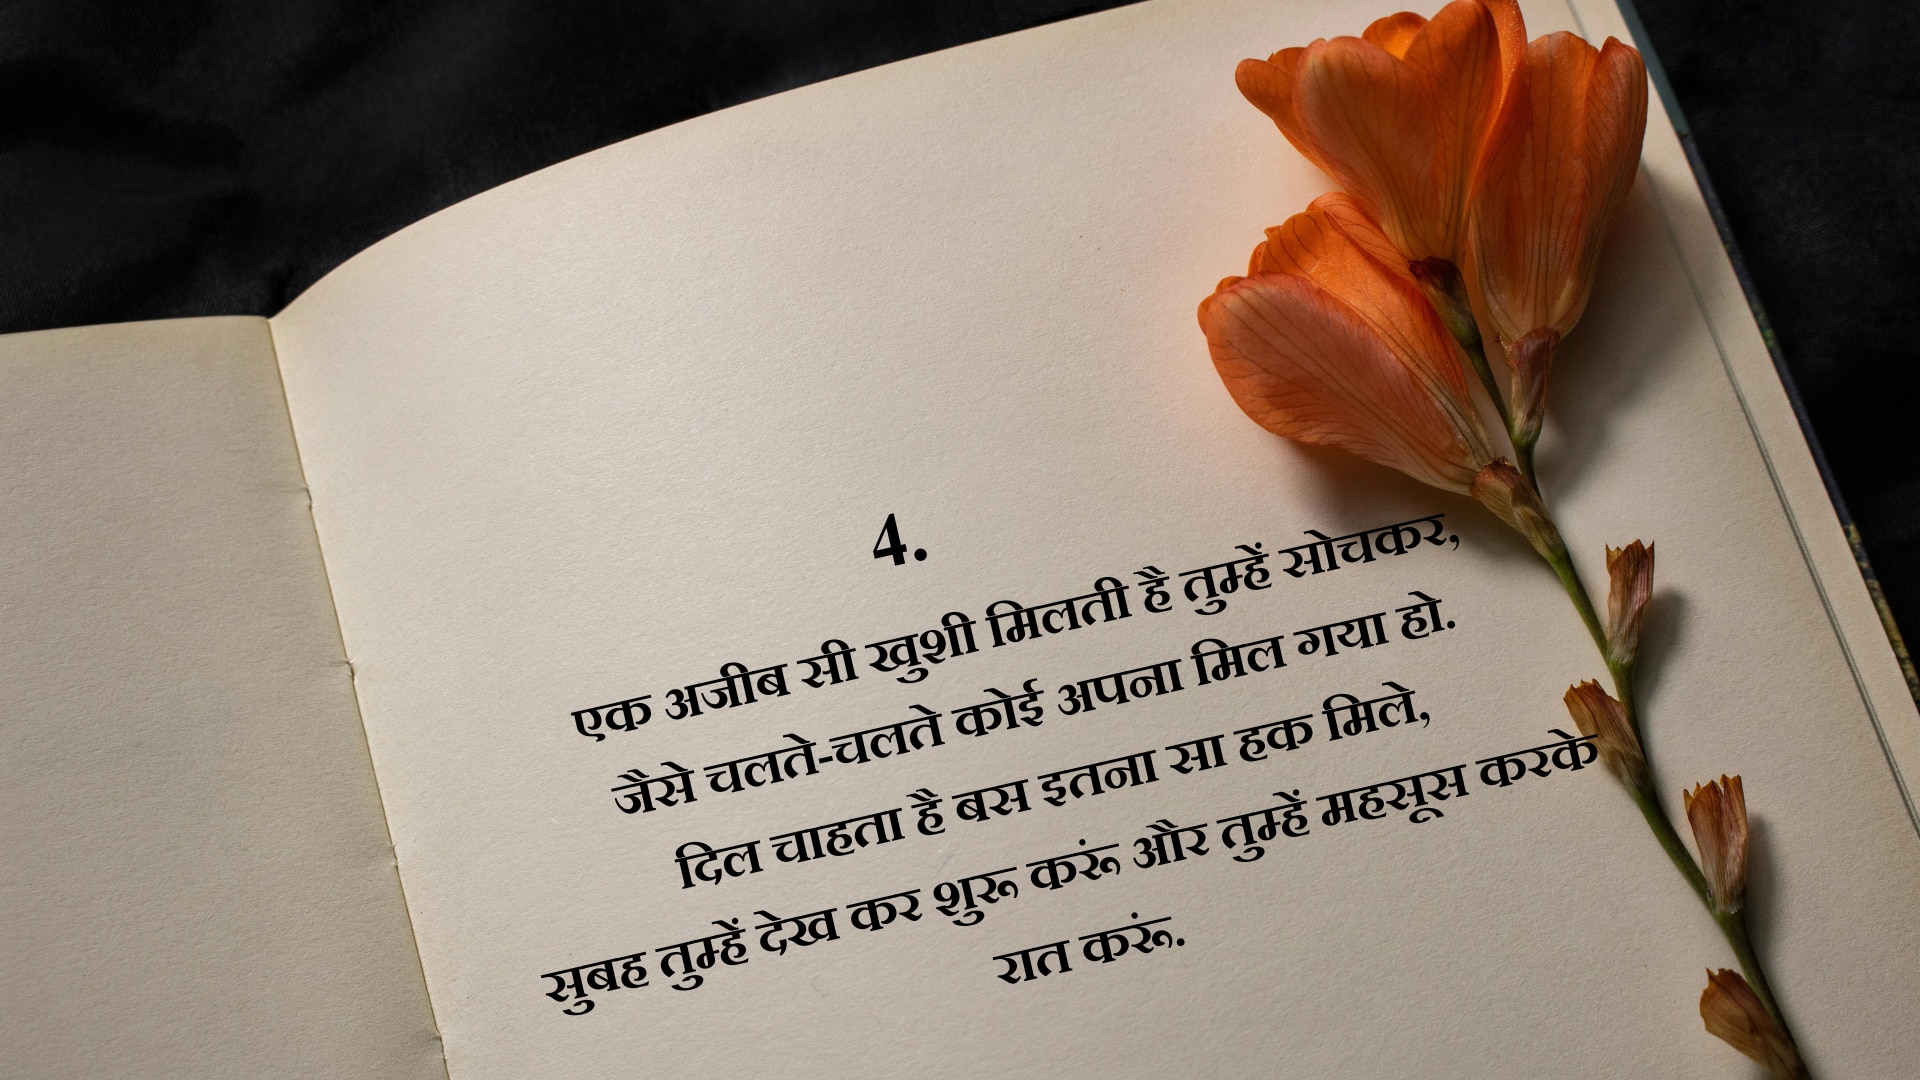 4.
एक अजीब सी खुशी मिलती है तुम्हें सोचकर,
जैसे चलते-चलते कोई अपना मिल गया हो.
दिल चाहता है बस इतना सा हक मिले,
सुबह तुम्हें देख कर शुरू करूं और तुम्हें महसूस करके
रात करूं.